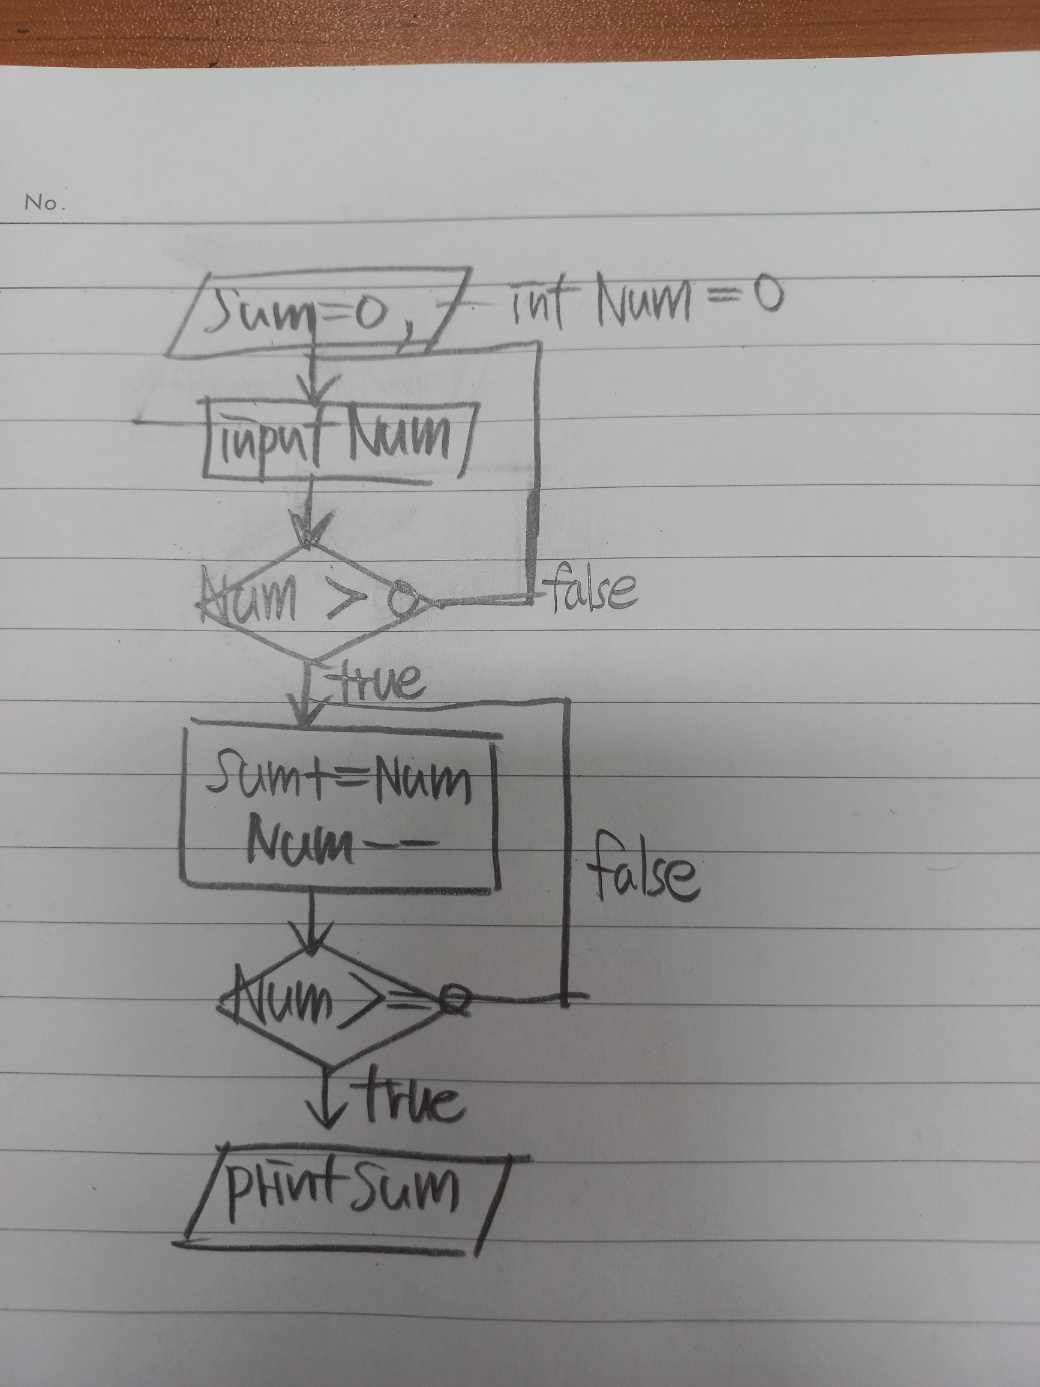 No.
Sum=0, int Num = 0
input Num
Num > 0
false
true
Sum+=Num
Num--
false
Num >= 0
true
print Sum